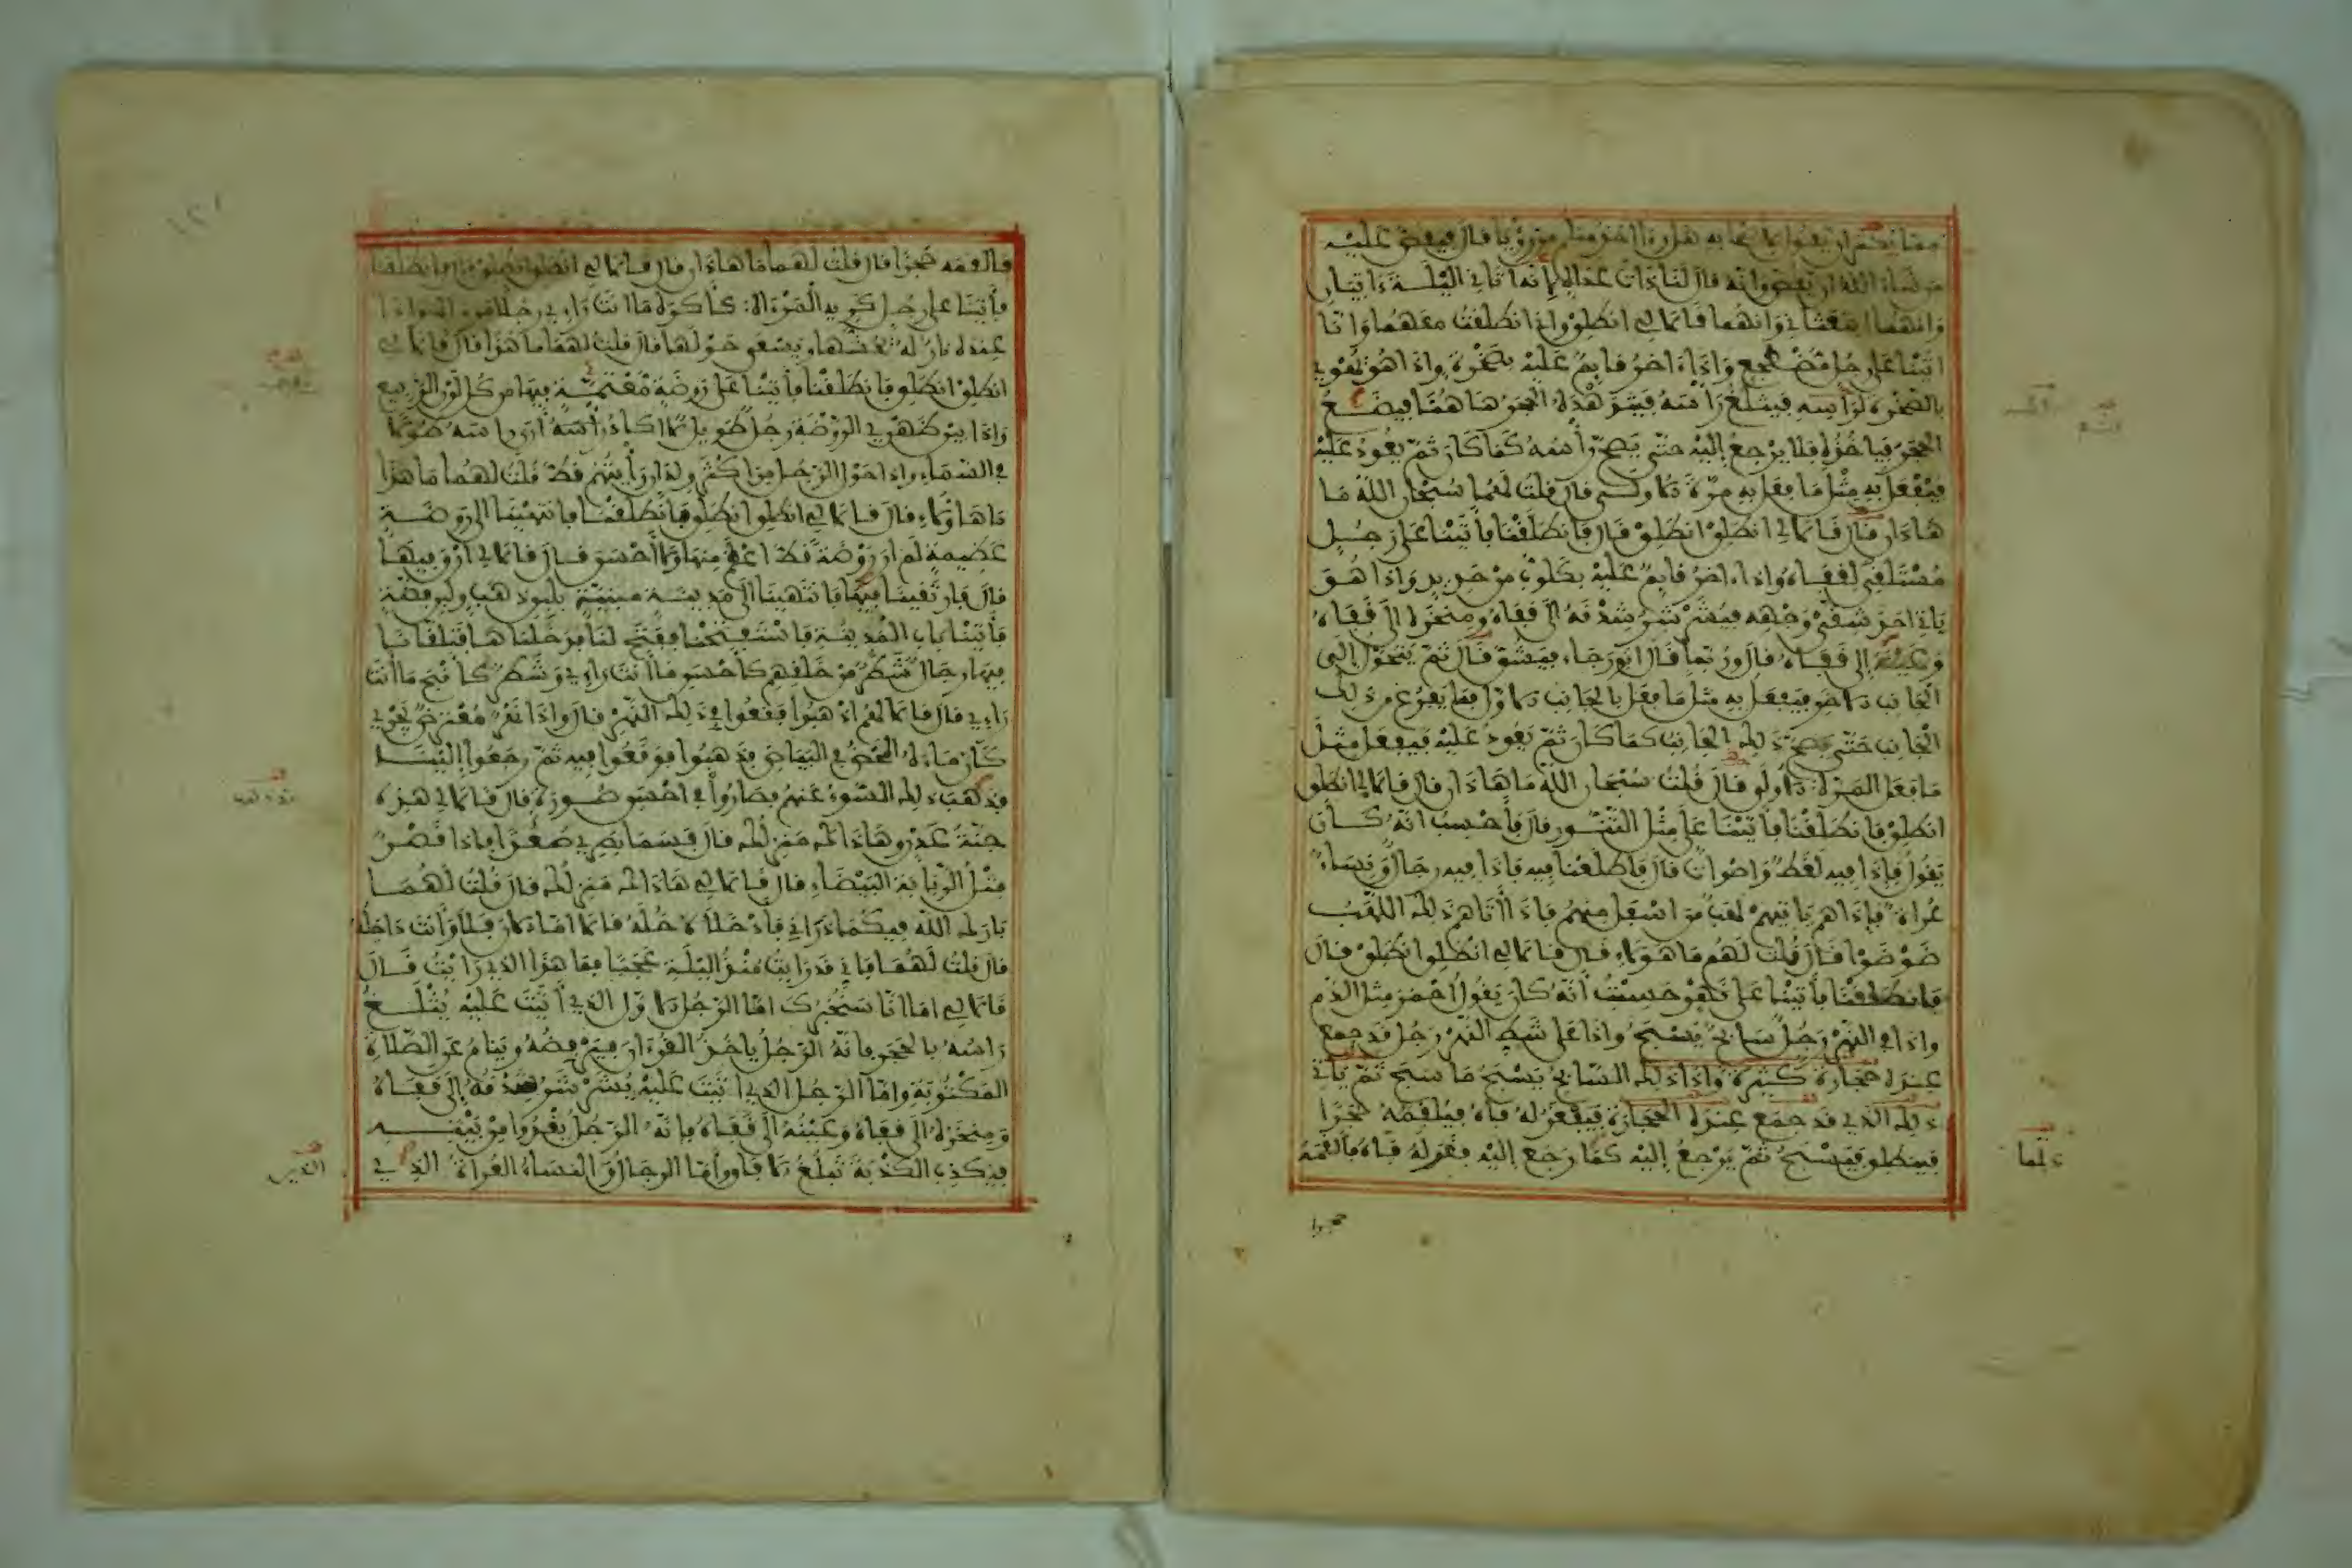 مما يكثر ان يقول لاصحابه هل راى احد منكم من رؤيا قال فيقص عليه
من شاء الله ان يقص وانه قال لنا ذات غداة إنه اتاني الليلة ءاتيان
وانهما ابتعثاني وانهما قالا لي انطلق واني انطلقت معهما وانا
اتينا على رجل مضطجع واذا ءاخر قايم عليه بصخرة واذا هو يهوي
بالصخرة لرأسه فيثلغ رأسه فيتدهده الحجر هاهنا فيتبع
الحجر فياخذه فلا يرجع إليه حتى يصح رأسه كما كان ثم يعود عليه
فيفعل به مثل ما فعل به مرة الاولى قال قلت لهما سبحان الله ما
هاذان قال قالا لي انطلق انطلق قال فانطلقنا فأتينا على رجل
مستلقي لقفاه واذا ءاخر قايم عليه بكلوب من حديد واذا هو
ياتي احد شقي وجهه فيشرشر شدقه الى قفاه ومنخره الى قفاه
وعينه إلى قفاه قال وربما قال ابو رجاء فيشق قال ثم يتحول إلى
الجانب الاخر فيفعل به مثل ما فعل بالجانب الاول فما يفرغ من ذلك
الجانب حتى يصح ذلك الجانب كما كان ثم يعود عليه فيفعل مثل
ما فعل المرة الاولى قال قلت سبحان الله ما هاذان قال قالا لي انطلق
انطلق فانطلقنا فأتينا على مثل التنور قال فأحسب انه كان
يقول فإذا فيه لغط واصوات قال فاطلعنا فيه فاذا فيه رجال ونساء
عراة فإذا هم ياتيهم لهب من اسفل منهم فاذا اتاهم ذلك اللهب
ضوضوا قال قلت لهم ما هؤلاء قال قالا لي انطلق انطلق قال
فانطلقنا فأتينا على نهر حسبت أنه كان يقول احمر مثل الدم
واذا في النهر رجل سابح يسبح واذا على شط النهر رجل قد جمع
عنده حجارة كثيرة واذا ذلك السابح يسبح ما سبح ثم ياتي
ذلك الذي قد جمع عنده الحجارة فيفغر له فاه فيلقمه حجرا
فينطلق فيسبح ثم يرجع إليه كلما رجع إليه فغر له فاه فألقمه
كلما
حجرا
فالقمه حجرا قال قلت لهما ما هاذان قال قالا لي انطلق انطلق قال فانطلقنا
فأتينا على رجل كريه المرءاة كأكره ما انت راء رجلا واذا
عنده نار له يحشها ويسعى حولها قال قلت لهما ما هذا قال قالا لي
انطلق انطلق فانطلقنا فأتينا على روضة معتمة فيها من كل لون الربيع
واذا بين ظهري الروضة رجل طويل لا اكاد ارى رأسه طولا
في السماء واذا حول الرجل من اكثر ولدان رأيتهم قط قلت لهما ما هذا
ما هاؤلاء قال قالا لي انطلق انطلق فانطلقنا فانتهينا الى روضة
عظيمة لم ار روضة قط اعظم منها ولا أحسن قال قالا لي ارق فيها
قال فارتقينا فيها فانتهينا الى مدينة مبنية بلبن ذهب ولبن فضة
فأتينا باب المدينة فاستفتحنا ففتح لنا فدخلناها فتلقانا
فيها رجال شطر من خلقهم كأحسن ما انت راء وشطر كأقبح ما انت
راء قال قالا لهم اذهبوا فقعوا في ذلك النهر قال واذا نهر معترض يجري
كأن ماءه المحض في البياض فذهبوا فوقعوا فيه ثم رجعوا إلينا
قد ذهب ذلك السوء عنهم فصاروا في احسن صورة قال قالا لي هذه
جنة عدن وهاذاك منزلك قال فسما بصري صعدا فاذا قصر
مثل الربابة البيضاء قال قالا لي هاذاك منزلك قال قلت لهما
بارك الله فيكما ذراني فأدخله قالا اما الان فلا وأنت داخله
قال قلت لهما فاني قد رايت منذ الليلة عجبا فما هذا الذي رايت قال
قالا لي اما انا سنخبرك اما الرجل الاول الذي أتيت عليه يثلغ
راسه بالحجر فانه الرجل ياخذ القرءان فيرفضه وينام عن الصلاة
المكتوبة واما الرجل الذي اتيت عليه يشرشر شدقه إلى قفاه
ومنخره الى قفاه وعينه الى قفاه فانه الرجل يغدوا من بيته
فيكذب الكذبة تبلغ الافاق واما الرجال والنساء العراة الذي
الذين